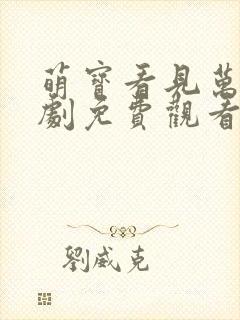 萌寶看見萬
劇免費觀看
劉威克